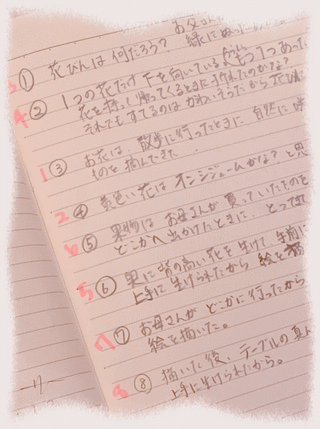 お父さん
3 ① 花びんは何だろう? 緑にぬっ
4 ② 1つの花だけ下を向いている もう1つあった
花を持って帰ってくるときに折れたのかな?
それでもすてるのはかわいそうだから花びん
1 ③ お花は、散歩に行ったときに自然に咲
ものを摘んできた。
2 ④ 黄色い花は オンシジュームかな? と思
6 ⑤ 果物はお母さんが買っていたものを
どこかへ出かけたときに、とって
5 ⑥ 奥に背の高い花を生けて、手前に
上手に生けられたから 絵を描
⑦ お母さんが どこかに行ったから
絵を描いた。
8 ⑧ 描いた後、テーブルの真ん
上手に生けられたから。